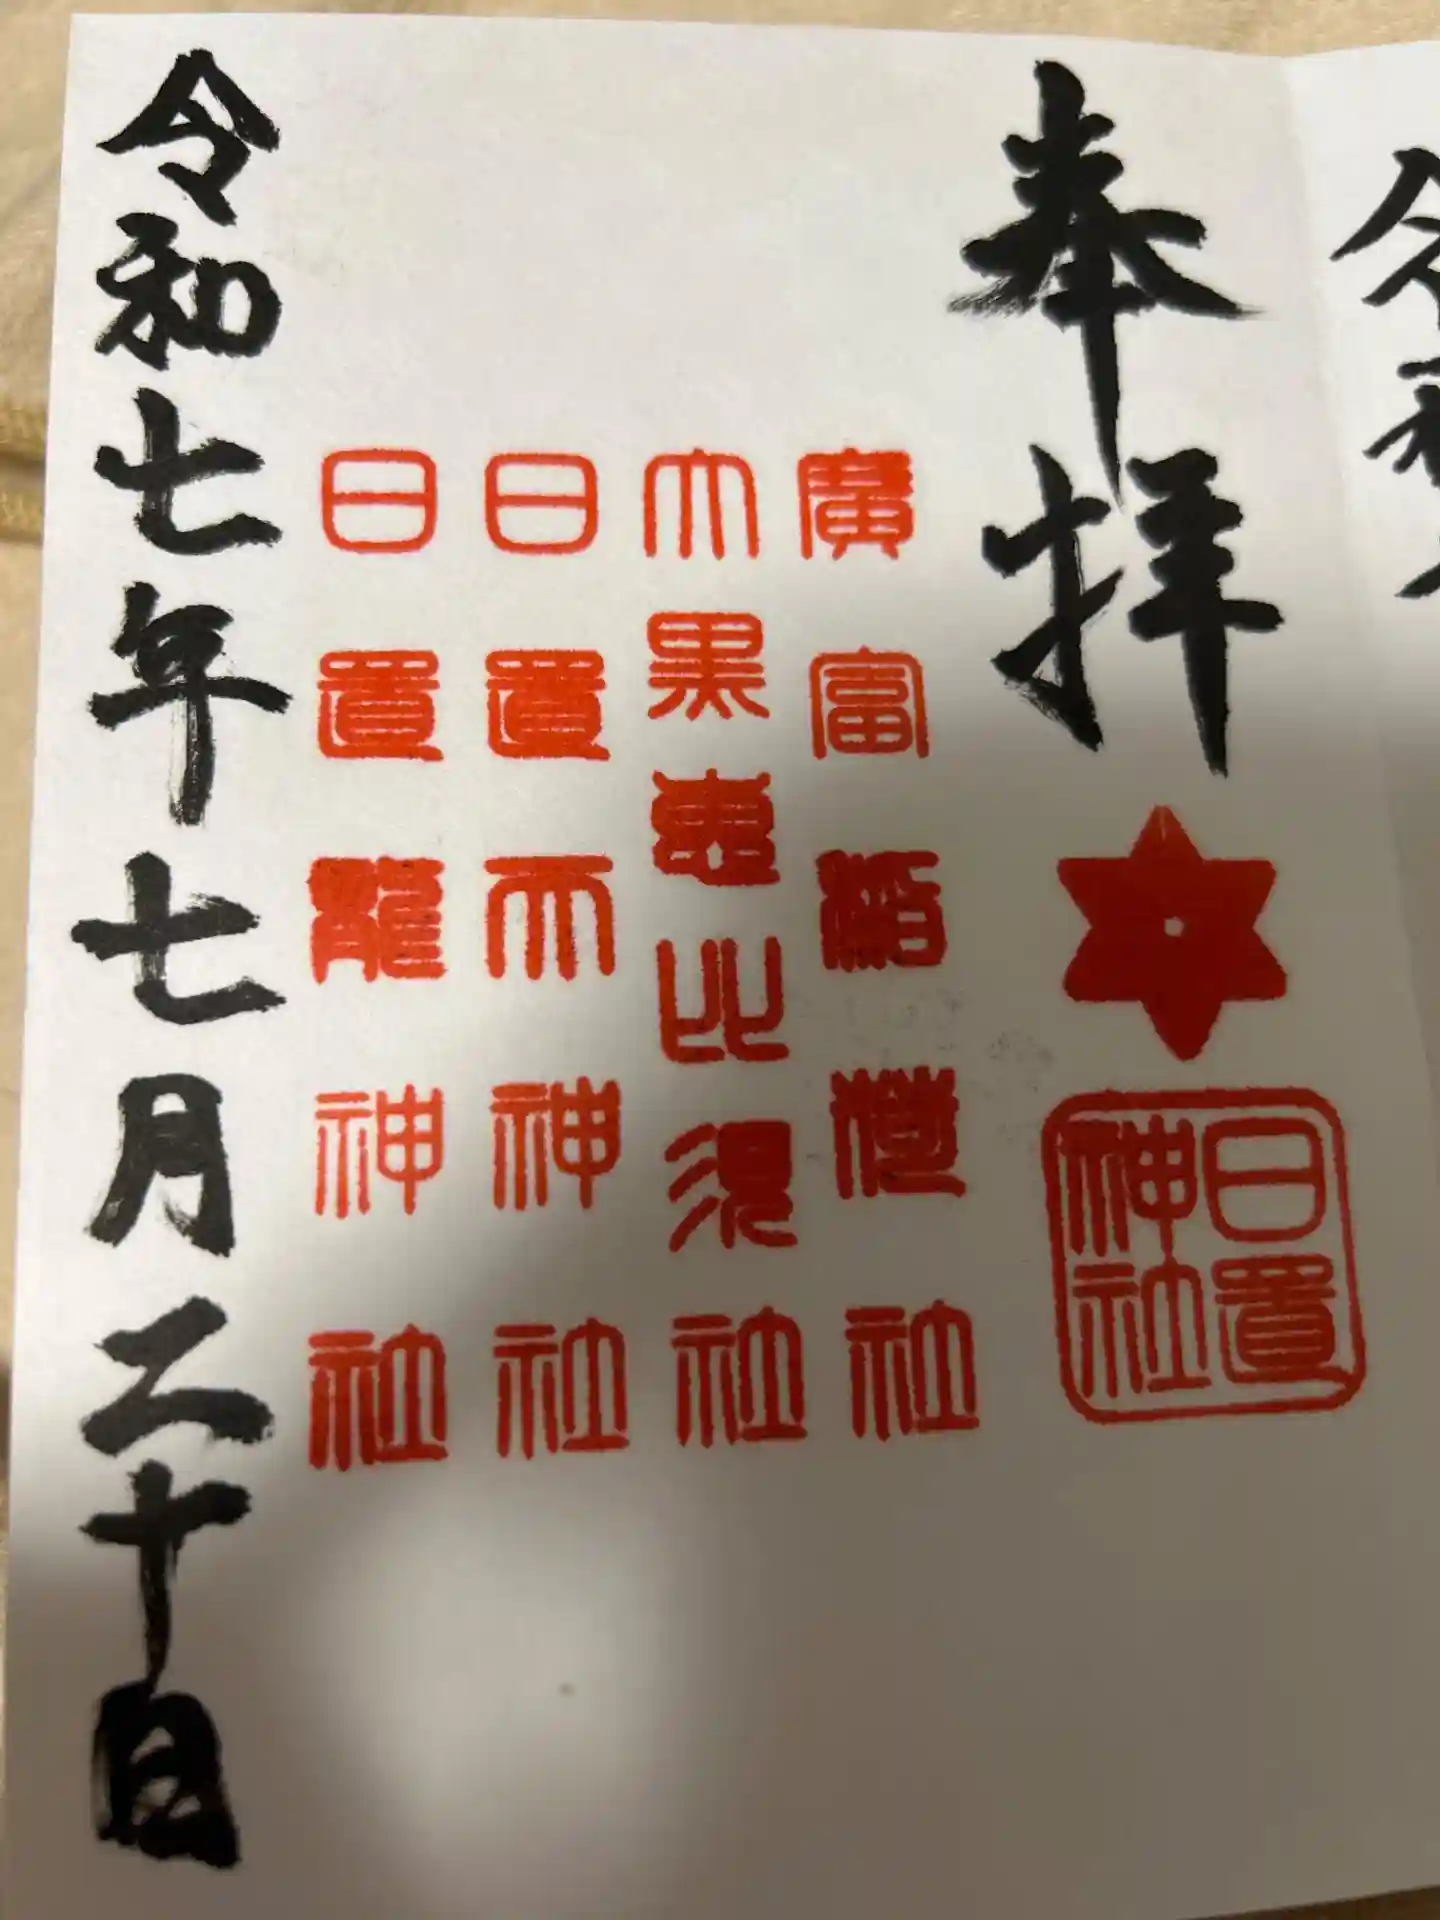 令和
奉拝
日置神社
廣富社
大黒惠比須社
日置天神社
日置龍神社
令和七年七月二十日